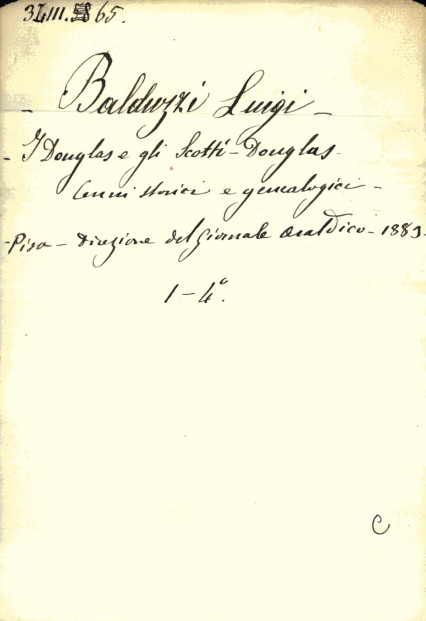 34.III. 65.
- Balduzzi Luigi -
- I Douglas e gli Scotti-Douglas -
Cenni storici e genealogici -
- Pisa - Direzione del Giornale Araldico - 1883 -
1 - 4°.
C